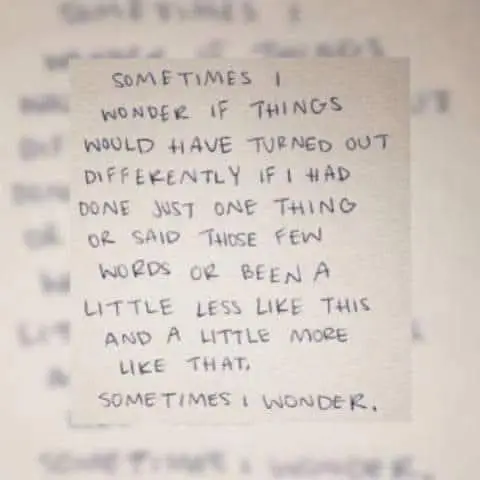 SOMETIMES I
WONDER IF THINGS
WOULD HAVE TURNED OUT
DIFFERENTLY IF I HAD
DONE JUST ONE THING
OR SAID THOSE FEW
WORDS OR BEEN A
LITTLE LESS LIKE THIS
AND A LITTLE MORE
LIKE THAT.
SOMETIMES I WONDER.